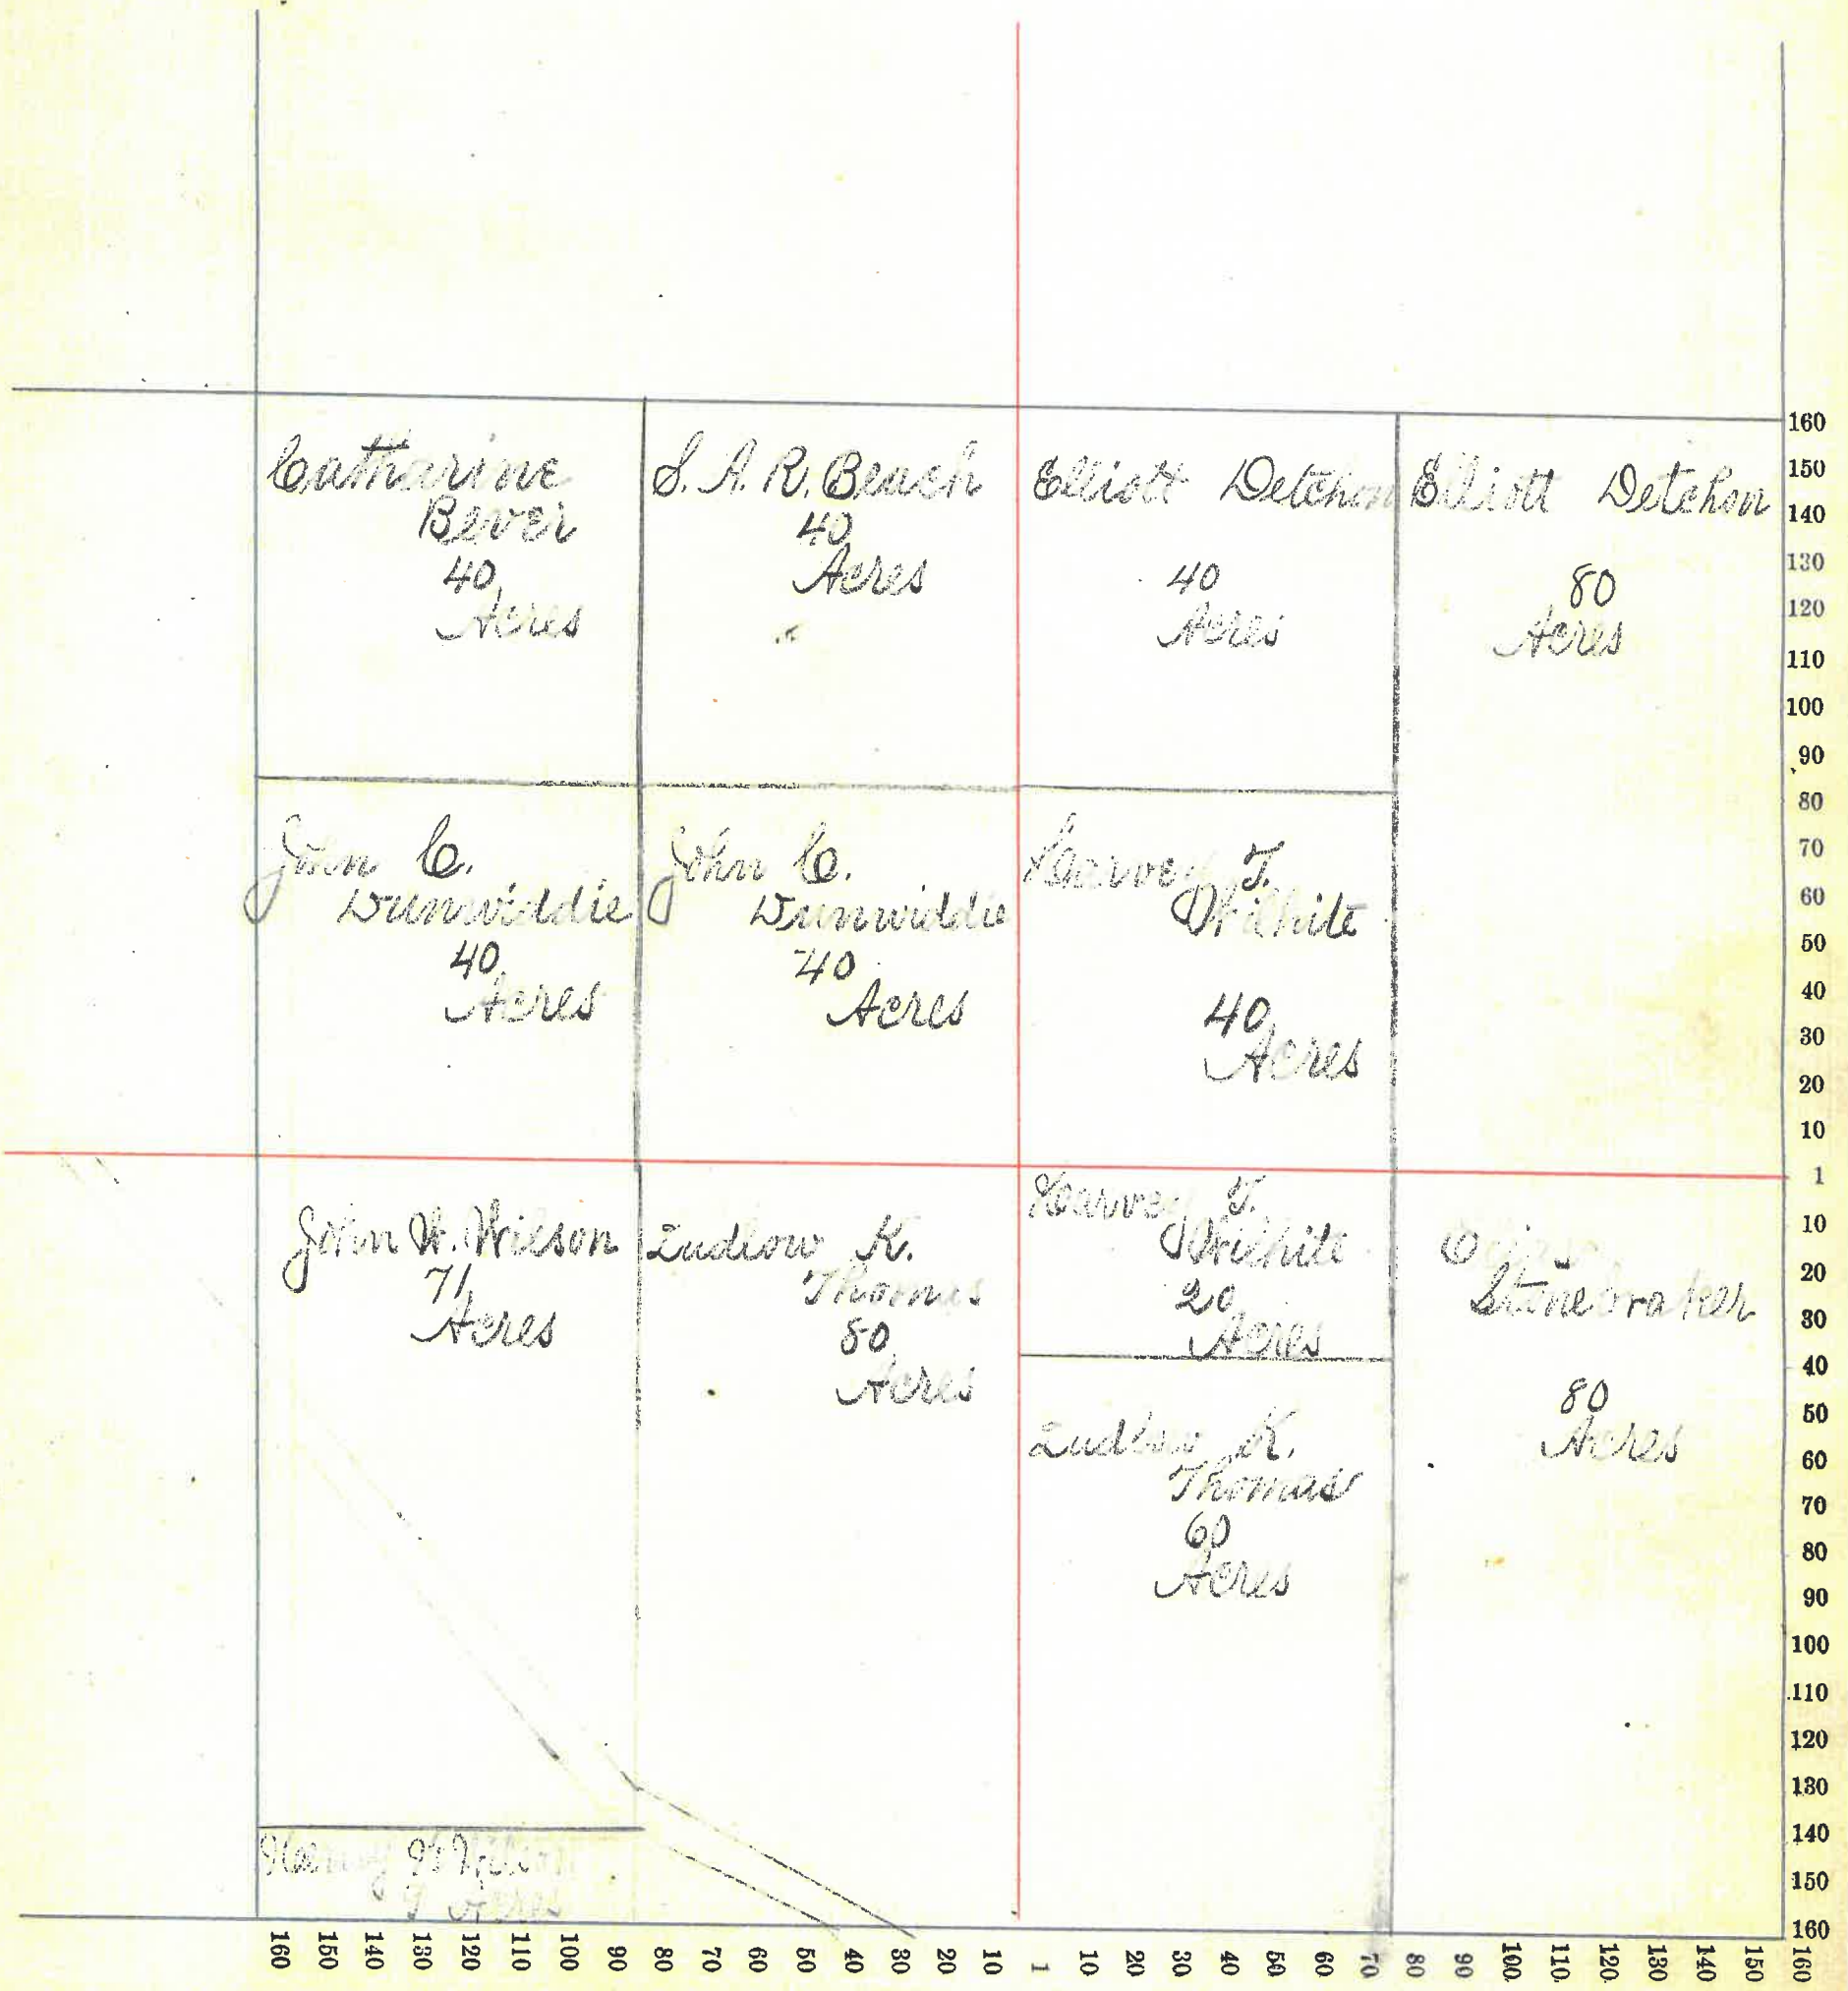 Catharine
Bever
40
Acres
S. A. R. Beach
40
Acres
Elliott Detchon
40
Acres
Elliott Detchon
80
Acres
John C.
Dunwiddie
40
Acres
John C.
Dunwiddie
40
Acres
Harvey T.
Wilhite
40
Acres
John W. Wilson
71
Acres
Ludlow K.
Thomas
80
Acres
Harvey T.
Wilhite
20
Acres
Ludlow K.
Thomas
60
Acres
Stonebraker
80
Acres
Wilson
9 Acres
160
150
140
130
120
110
100
90
80
70
60
50
40
30
20
10
1
10
20
30
40
50
60
70
80
90
100
110
120
130
140
150
160
160 150 140 130 120 110 100 90 80 70 60 50 40 30 20 10 1 10 20 30 40 50 60 70 80 90 100 110 120 130 140 150 160